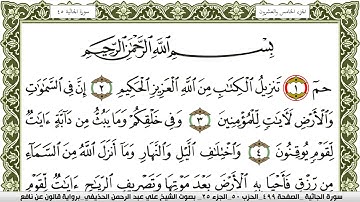 الجزء الخامس والعشرون سورة الجاثية ٤٥
بِسْمِ اللَّهِ الرَّحْمَٰنِ الرَّحِيمِ
حمٓ ١ تَنزِيلُ الْكِتَٰبِ مِنَ اللَّهِ الْعَزِيزِ الْحَكِيمِ ٢ إِنَّ فِي السَّمَٰوَٰتِ
وَالْأَرْضِ لَأٓيَٰتٍ لِّلْمُؤْمِنِينَ ٣ وَفِي خَلْقِكُمْ وَمَا يَبُثُّ مِن دَآبَّةٍ ءَايَٰتٌ
لِّقَوْمٍ يُوقِنُونَ ٤ وَاخْتِلَٰفِ الَّيْلِ وَالنَّهَارِ وَمَآ أَنزَلَ اللَّهُ مِنَ السَّمَآءِ
مِن رِّزْقٍ فَأَحْيَا بِهِ الْأَرْضَ بَعْدَ مَوْتِهَا وَتَصْرِيفِ الرِّيَٰحِ ءَايَٰتٌ لِّقَوْمٍ
سورة الجاثية_ الصفحة ٤٩٩_ الحزب ٥٠_ الجزء ٢٥_ بصوت الشيخ علي عبد الرحمن الحذيفي_ برواية قالون عن نافع